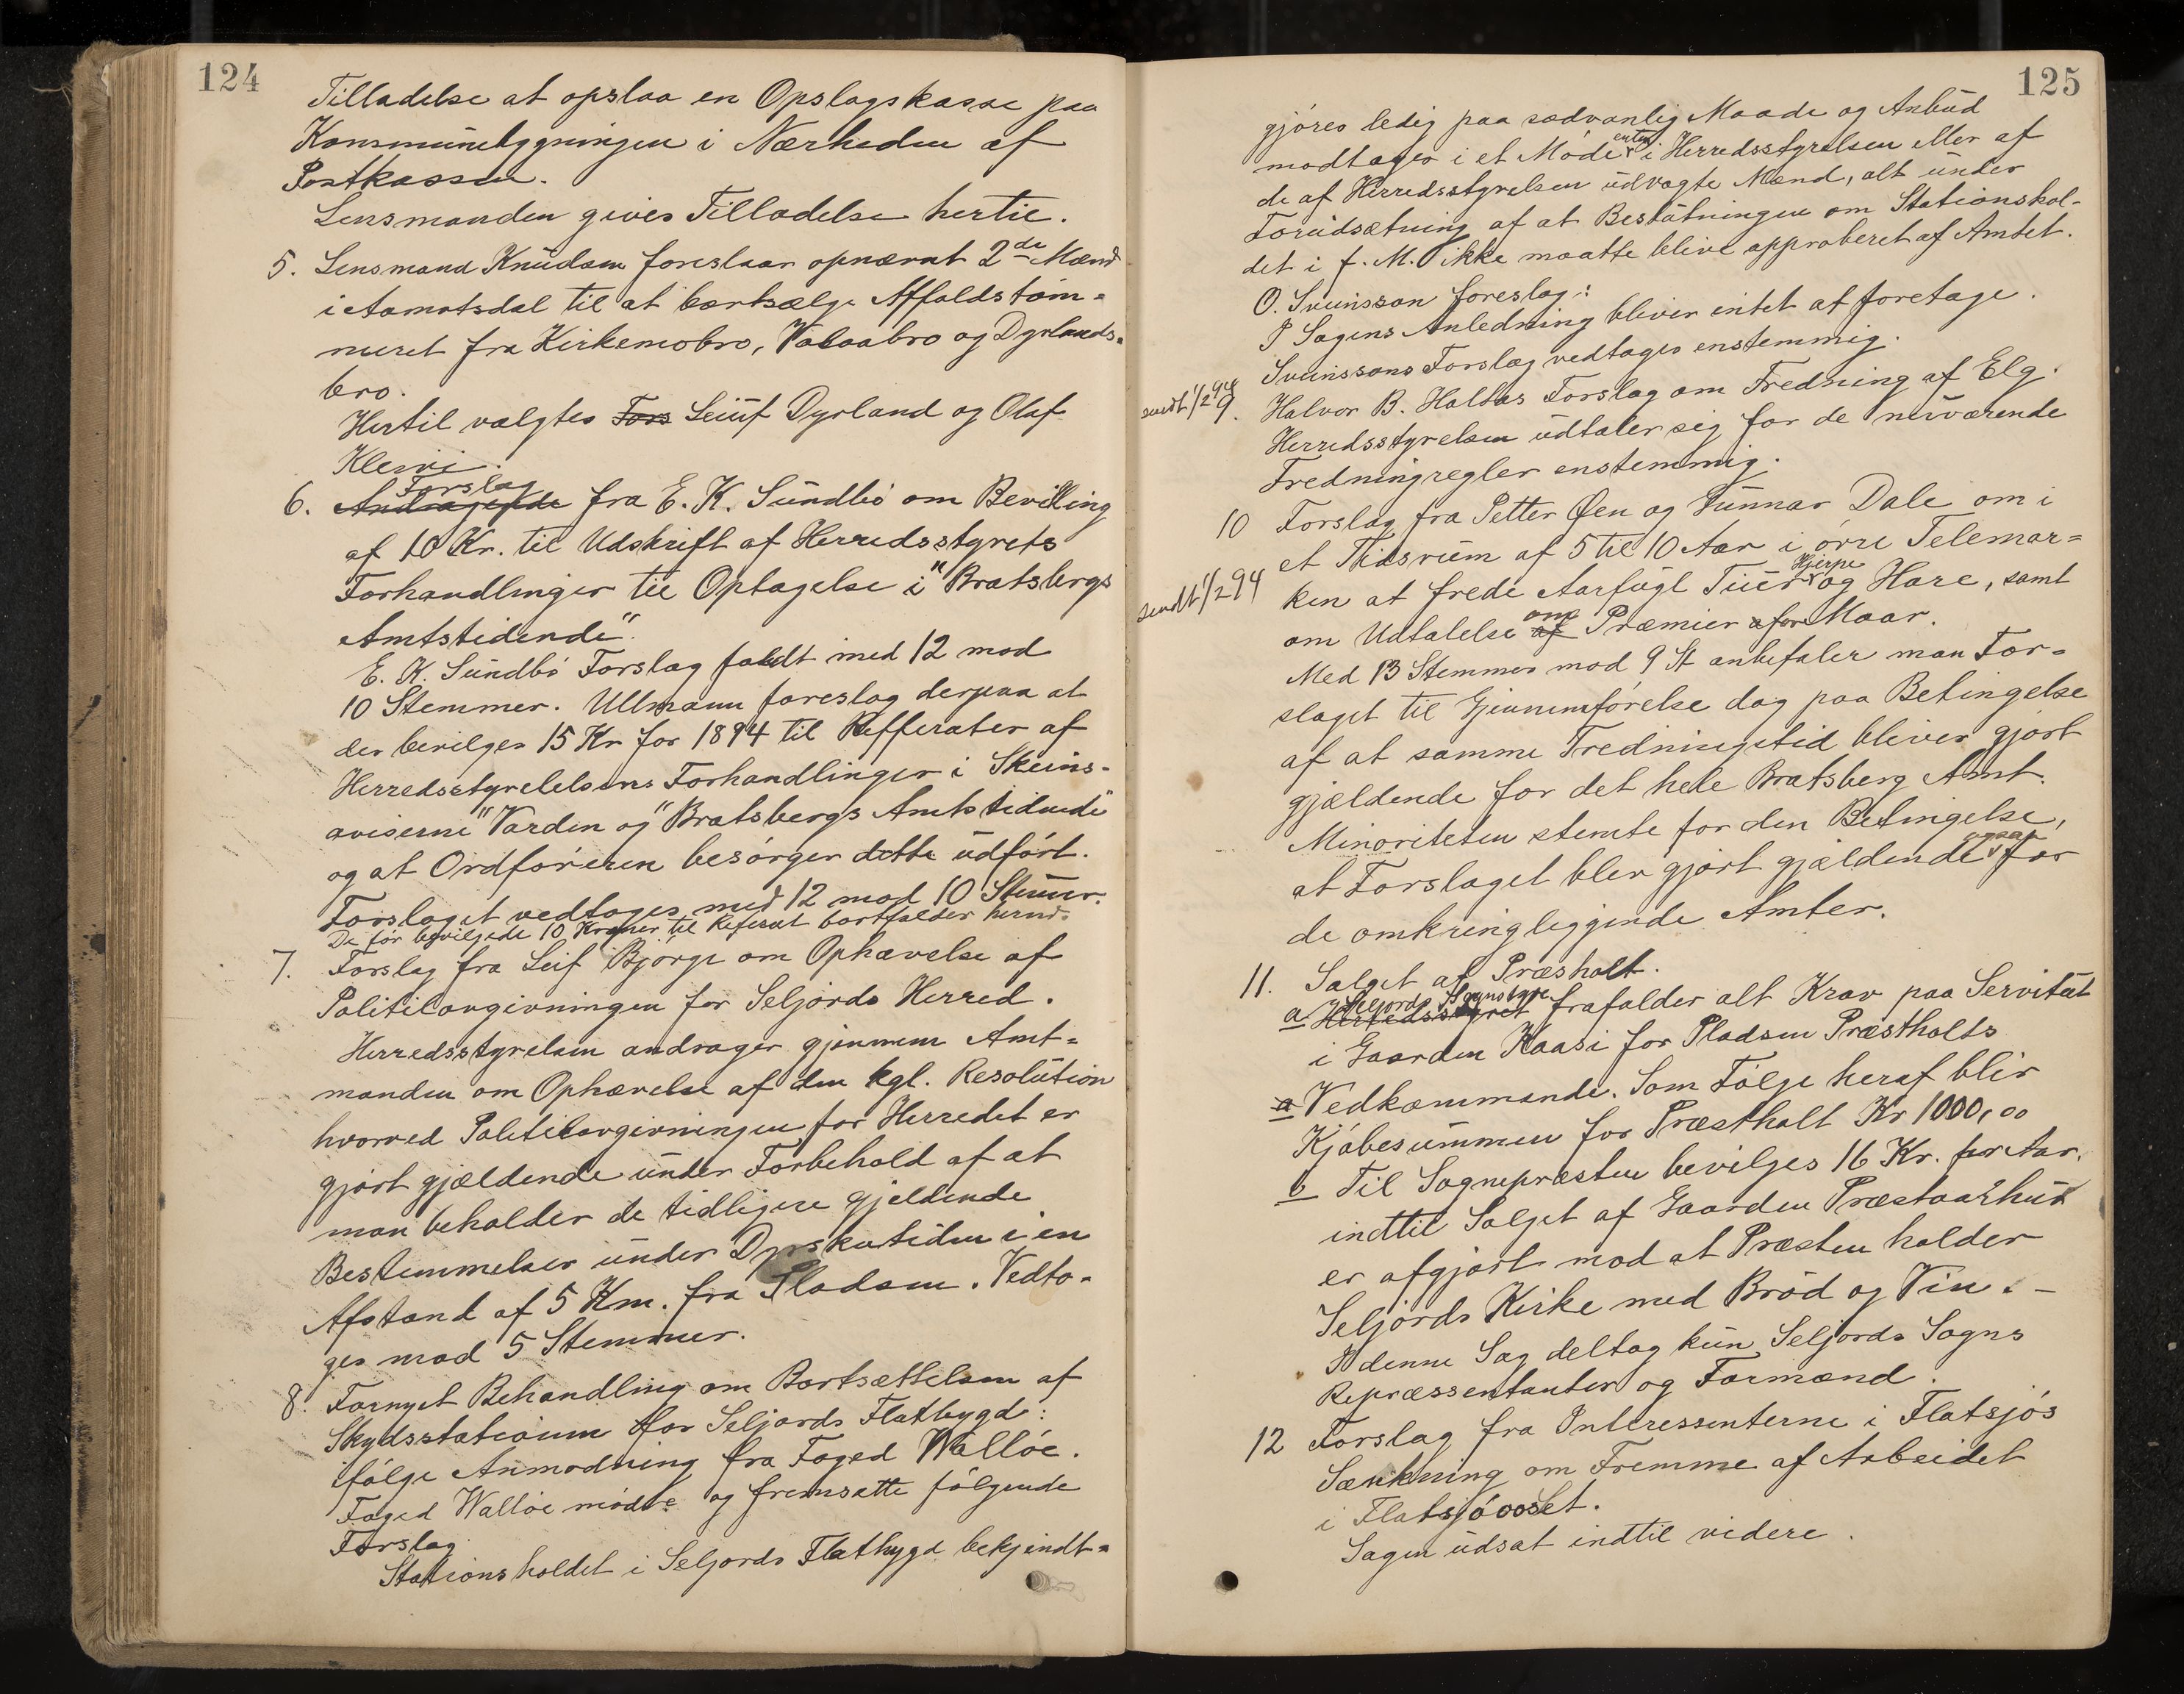 124
Tilladelse at opslaa en Opslagskasse paa
Kommunebygningen i Nærheden af
Postkassen.
Lensmanden gives Tilladelse hertil.
5. Lensmand Knudsen foreslaar opnævnt 2de Mænd
i Aamotsdal til at bortsælge Affaldstøm-
meret fra Kirkemobro, Valaabro og Dyrlands-
bro.
Hertil valgtes Fors Leiuf Dyrland og Olaf
Kleivi.
Forslag
6. Andragende fra E. K. Sundbø om Bevilling
af 10 Kr. til Udskrift af Herredsstyrets
Forhandlinger til Optagelse i "Bratsbergs
Amtstidende".
E. K. Sundbø Forslag faldt med 12 mod
10 Stemmer. Ullmann foreslog derpaa at
der bevilges 15 Kr for 1894 til Refferater af
Herredsstyrelelsens Forhandlinger i Skeins-
aviserne "Varden og "Bratsbergs Amtstidende"
og at Ordføreren besørger dette udført.
Forslaget vedtages med 12 mod 10 Stemmr.
De før bevilgede 10 Kroner til Referat bortfalder herved.
7. Forslag fra Leif Bjørge om Ophævelse af
Politilovgivningen for Seljords Herred.
Herredsstyrelsen andrager gjennem Amt-
manden om Ophævelse af den kgl. Resolution
hvorved Politilovgivningen for Herredet er
gjort gjældende under Forbehold af at
man beholder de tidligere gjeldende
Bestemmelser under Dyrskutiden i en
Afstand af 5 Km. fra Pladsen. Vedta-
ges mod 5 Stemmer.
8. Fornyet Behandling om Bortsættelsen af
Skydsstationen for Seljords Flatbygd:
ifølge Anmodning fra Foged Walløe.
Foged Walløe mødte og fremsatte følgende
Forslag
Stationsholdet i Seljords Flatbygd bekjendt-
125
gjøres ledig paa sædvanlig Maade og Anbud
modtages i et Møde enten i Herredsstyrelsen eller af
de af Herredsstyrelsen udvagte Mænd, alt under
Forudsætning af at Beslutningen om Stationshol-
det i f. M. ikke maatte blive approberet af Amtet.
O. Sveinsson foreslog:
I Sagens Anledning bliver intet at foretage.
Sveinssons Forslag vedtages enstemmig.
sendt 1/2 94
9. Halvor B. Haltas Forslag om Fredning af Elg.
Herredsstyrelsen udtaler sig for de nuværende
Fredningregler enstemmig.
10 Forslag fra Petter Øen og Gunnar Dale om i
et Tidsrum af 5 til 10 Aar i øvre Telemar-
sendt 1/2 94
ken at frede Aarfugl Tiur Hjerpe og Hare, samt
om Udtalelse af om Præmier a for Maar.
Med 13 Stemmer mod 9 St anbefaler man For-
slaget til Gjennemførelse dog paa Betingelse
af at samme Fredningstid bliver gjort
gjældende for det hele Bratsberg Amt.
Minoriteten stemte for den Betingelse,
at Forslaget blev gjort gjældende ogsaa for
de omkringliggende Amter.
11. Salget af Præsholt.
a Herredsstyret Seljords Sognstyre frafalder alt Krav paa Servitut
i Gaarden Kaasi for Pladsen Præstholts
a Vedkommende. Som Følge heraf blir
Kjøbesummen for Præstholt Kr 1000,00
b Til Sognepræsten bevilges 16 Kr. for Aar.
indtil Salget af Gaarden Præstaarhus
er afgjort mod at Præsten holder
Seljords Kirke med Brød og Vin. –
I denne Sag deltog kun Seljords Sogns
Repræssentanter og Formænd.
12 Forslag fra Interessenterne i Flatsjøs
Sænkning om Fremme af Arbeidet
i Flatsjøoset.
Sagen udsat indtil videre.